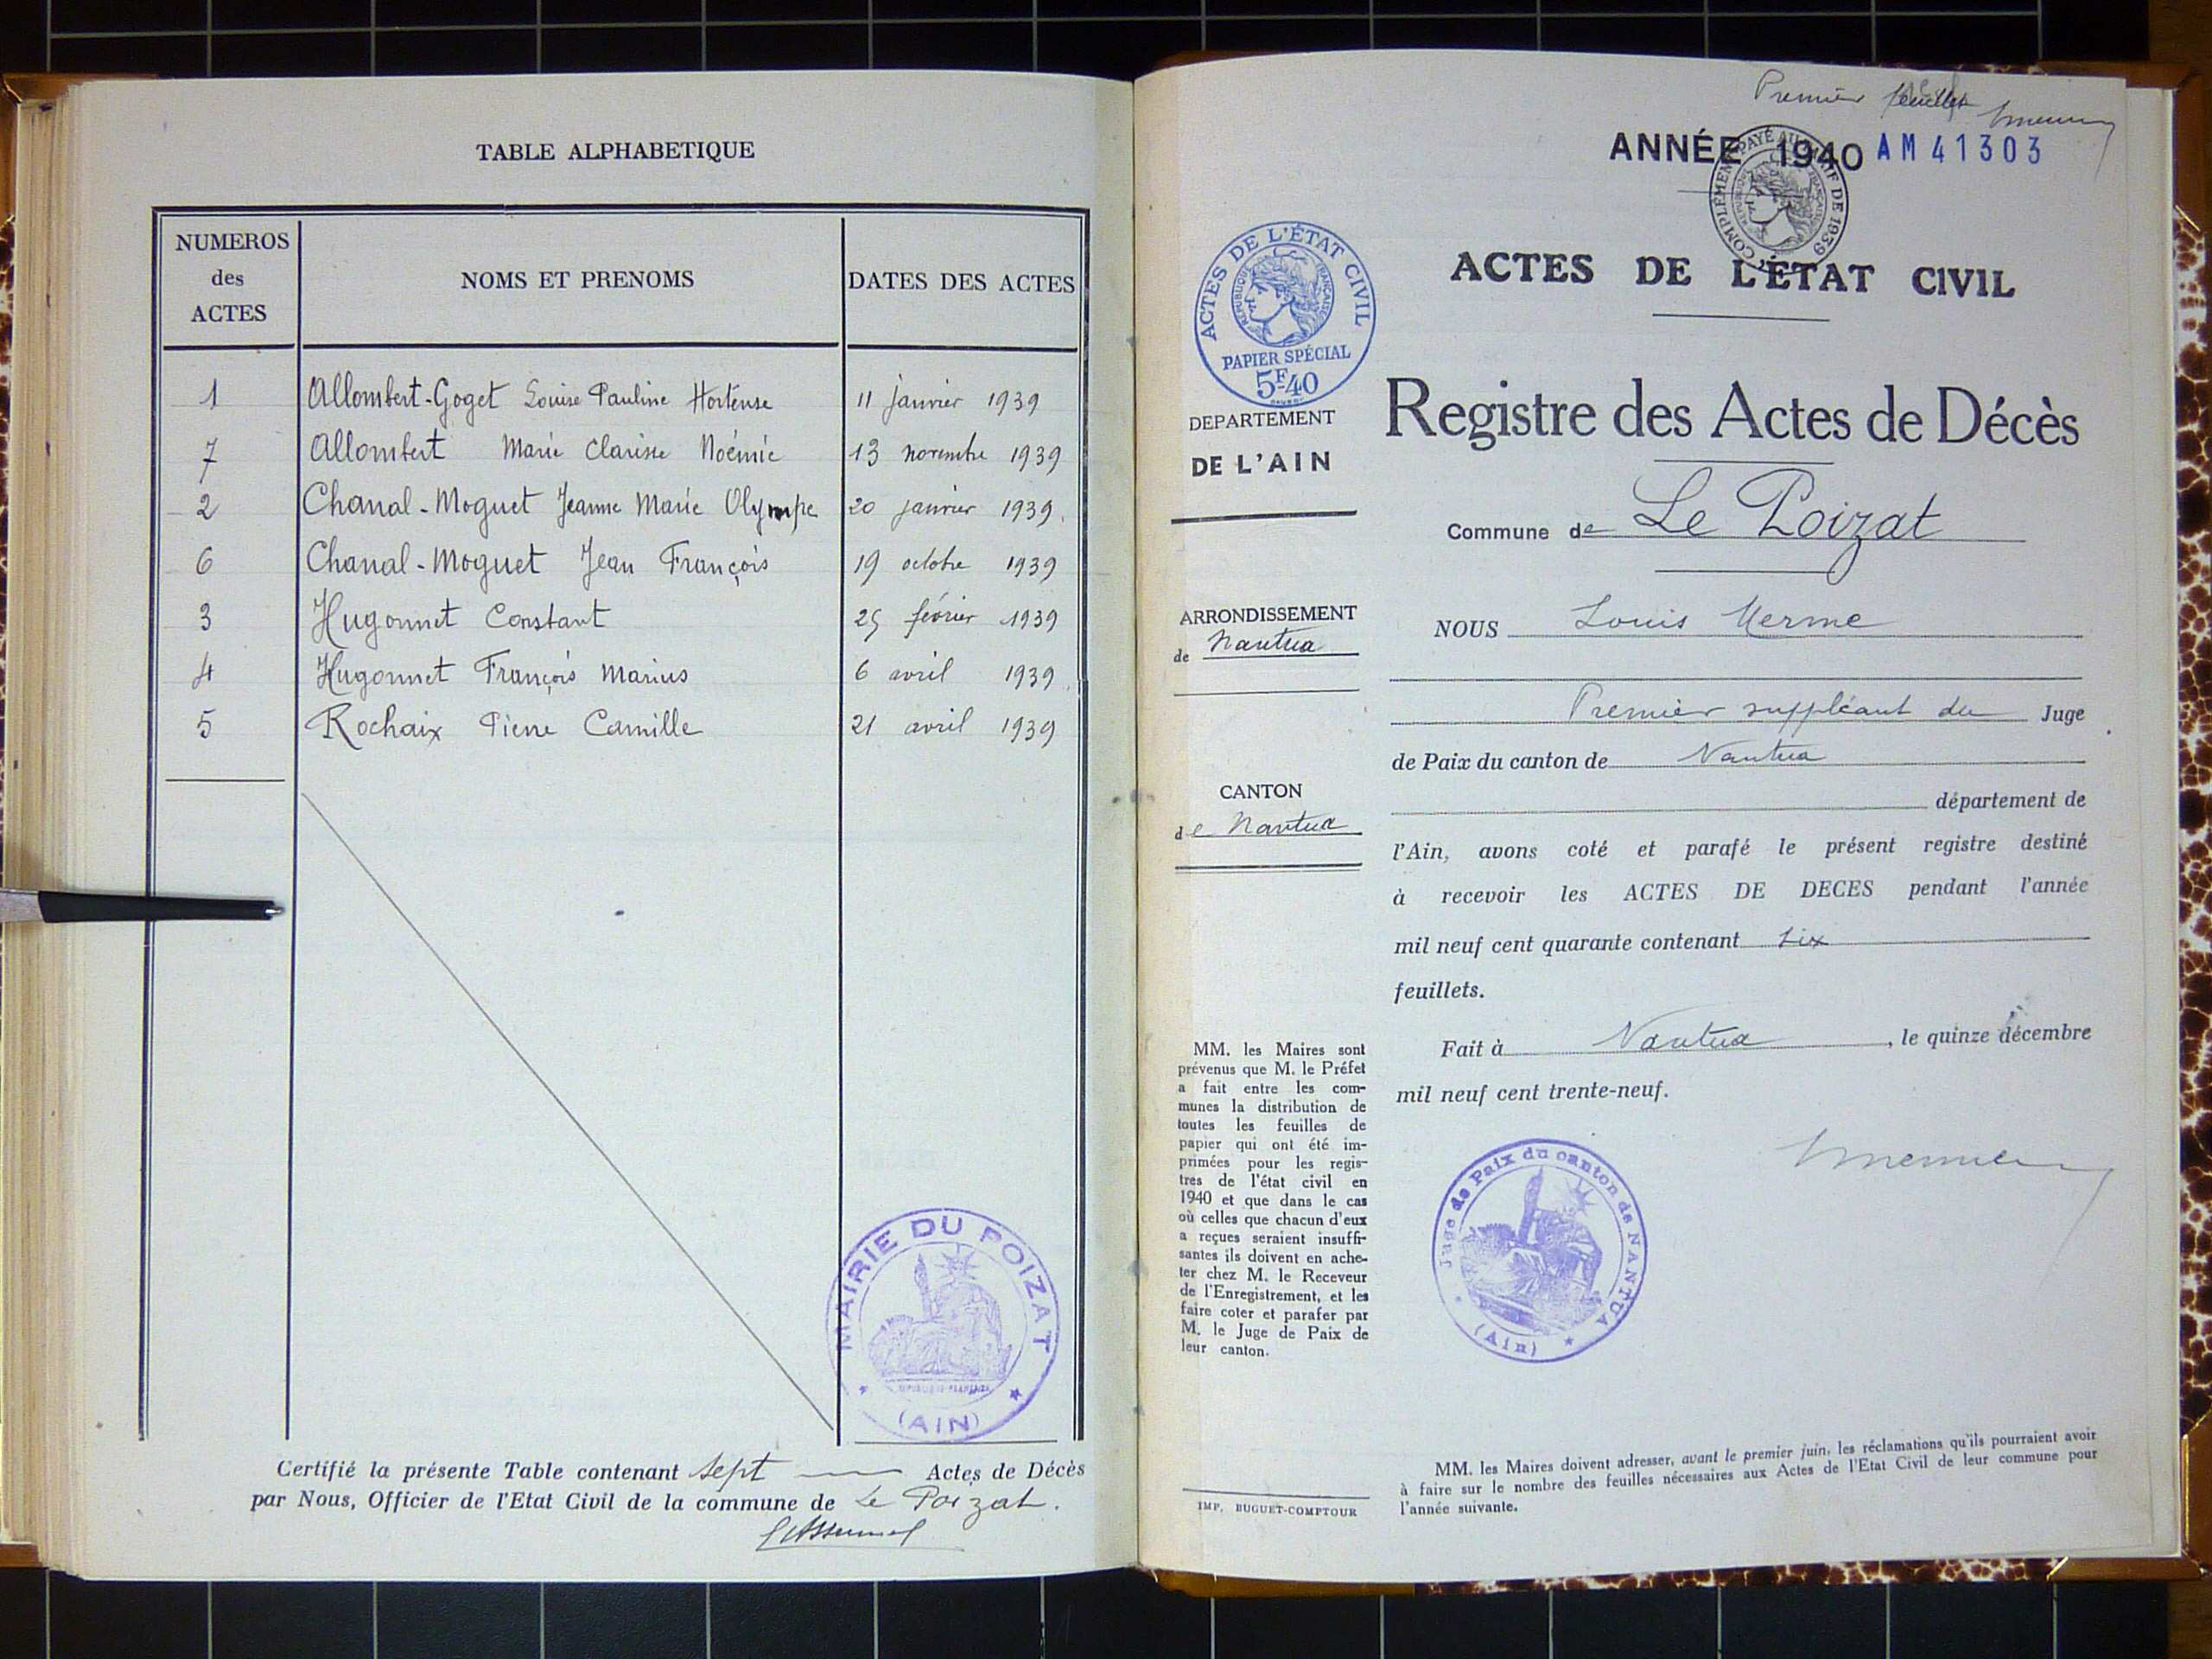 TABLE ALPHABETIQUE
NUMEROS
des
ACTES
NOMS ET PRENOMS
DATES DES ACTES
1 Allombert-Goget Louise Pauline Hortense 11 janvier 1939
7 Allombert Marie Clarisse Noémie 13 novembre 1939
2 Chanal-Moguet Jeanne Marie Olympe 20 janvier 1939
6 Chanal-Moguet Jean François 19 octobre 1939
3 Hugonnet Constant 25 février 1939
4 Hugonnet François Marius 6 avril 1939
5 Rochaix Pierre Camille 21 avril 1939
MAIRIE DU POIZAT
REPUBLIQUE FRANÇAISE
(AIN)
Certifié la présente Table contenant sept Actes de Décès
par Nous, Officier de l'Etat Civil de la commune de Le Poizat.
Premier feuillet
ANNÉE 1940 AM 41303
COMPLÉMENT PAYÉ AU TARIF DE 1939
RÉPUBLIQUE FRANÇAISE
ACTES DE L'ÉTAT CIVIL
RÉPUBLIQUE FRANÇAISE
PAPIER SPÉCIAL
5F.40
ACTES DE L'ÉTAT CIVIL
DEPARTEMENT
DE L'AIN
Registre des Actes de Décès
Commune de Le Poizat
ARRONDISSEMENT
de Nantua
CANTON
de Nantua
NOUS Louis Merme
Premier suppléant du Juge
de Paix du canton de Nantua
département de
l'Ain, avons coté et parafé le présent registre destiné
à recevoir les ACTES DE DECES pendant l'année
mil neuf cent quarante contenant six
feuillets.
Fait à Nantua, le quinze décembre
mil neuf cent trente-neuf.
Juge de Paix du canton de NANTUA
(Ain)
MM. les Maires sont
prévenus que M. le Préfet
a fait entre les com-
munes la distribution de
toutes les feuilles de
papier qui ont été im-
primées pour les regis-
tres de l'état civil en
1940 et que dans le cas
où celles que chacun d'eux
a reçues seraient insuffi-
santes ils doivent en ache-
ter chez M. le Receveur
de l'Enregistrement, et les
faire coter et parafer par
M. le Juge de Paix de
leur canton.
IMP. BUGUET-COMPTOUR
MM. les Maires doivent adresser, avant le premier juin, les réclamations qu'ils pourraient avoir
à faire sur le nombre des feuilles nécessaires aux Actes de l'Etat Civil de leur commune pour
l'année suivante.